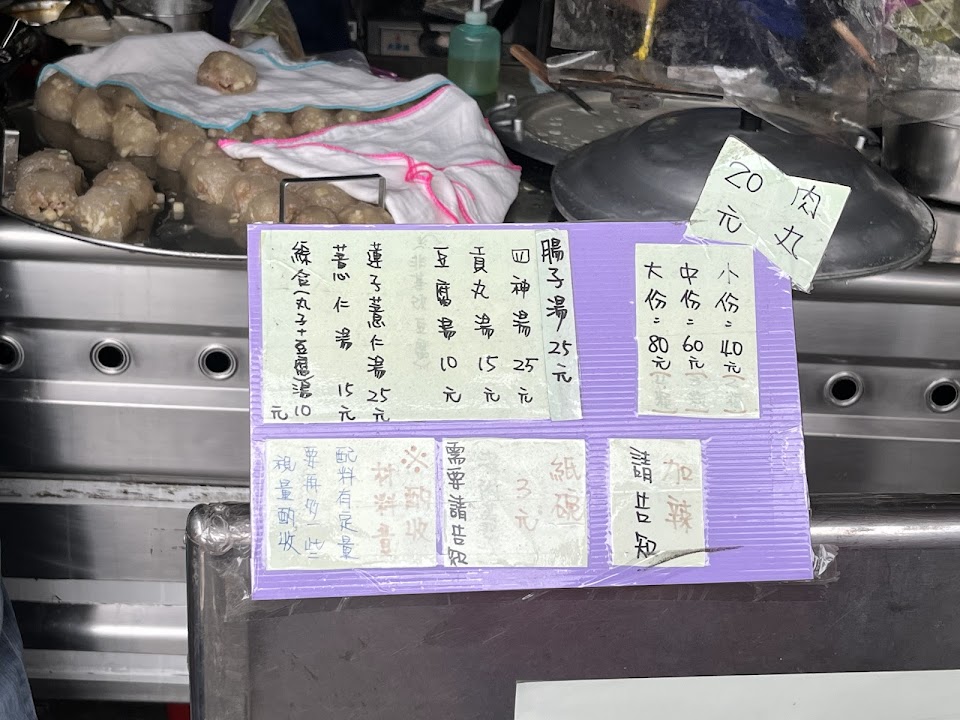 肉丸
20元
小份=40元
中份=60元
大份=80元
腸子湯25元
四神湯25元
貢丸湯15元
豆腐湯10元
蓮子薏仁湯25元
薏仁湯15元
綜合(丸子+豆腐湯10元
加辣
請告知
紙碗
3元
需要請告知
※酌收
材料費
配料有足量
要再多一些
視量酌收